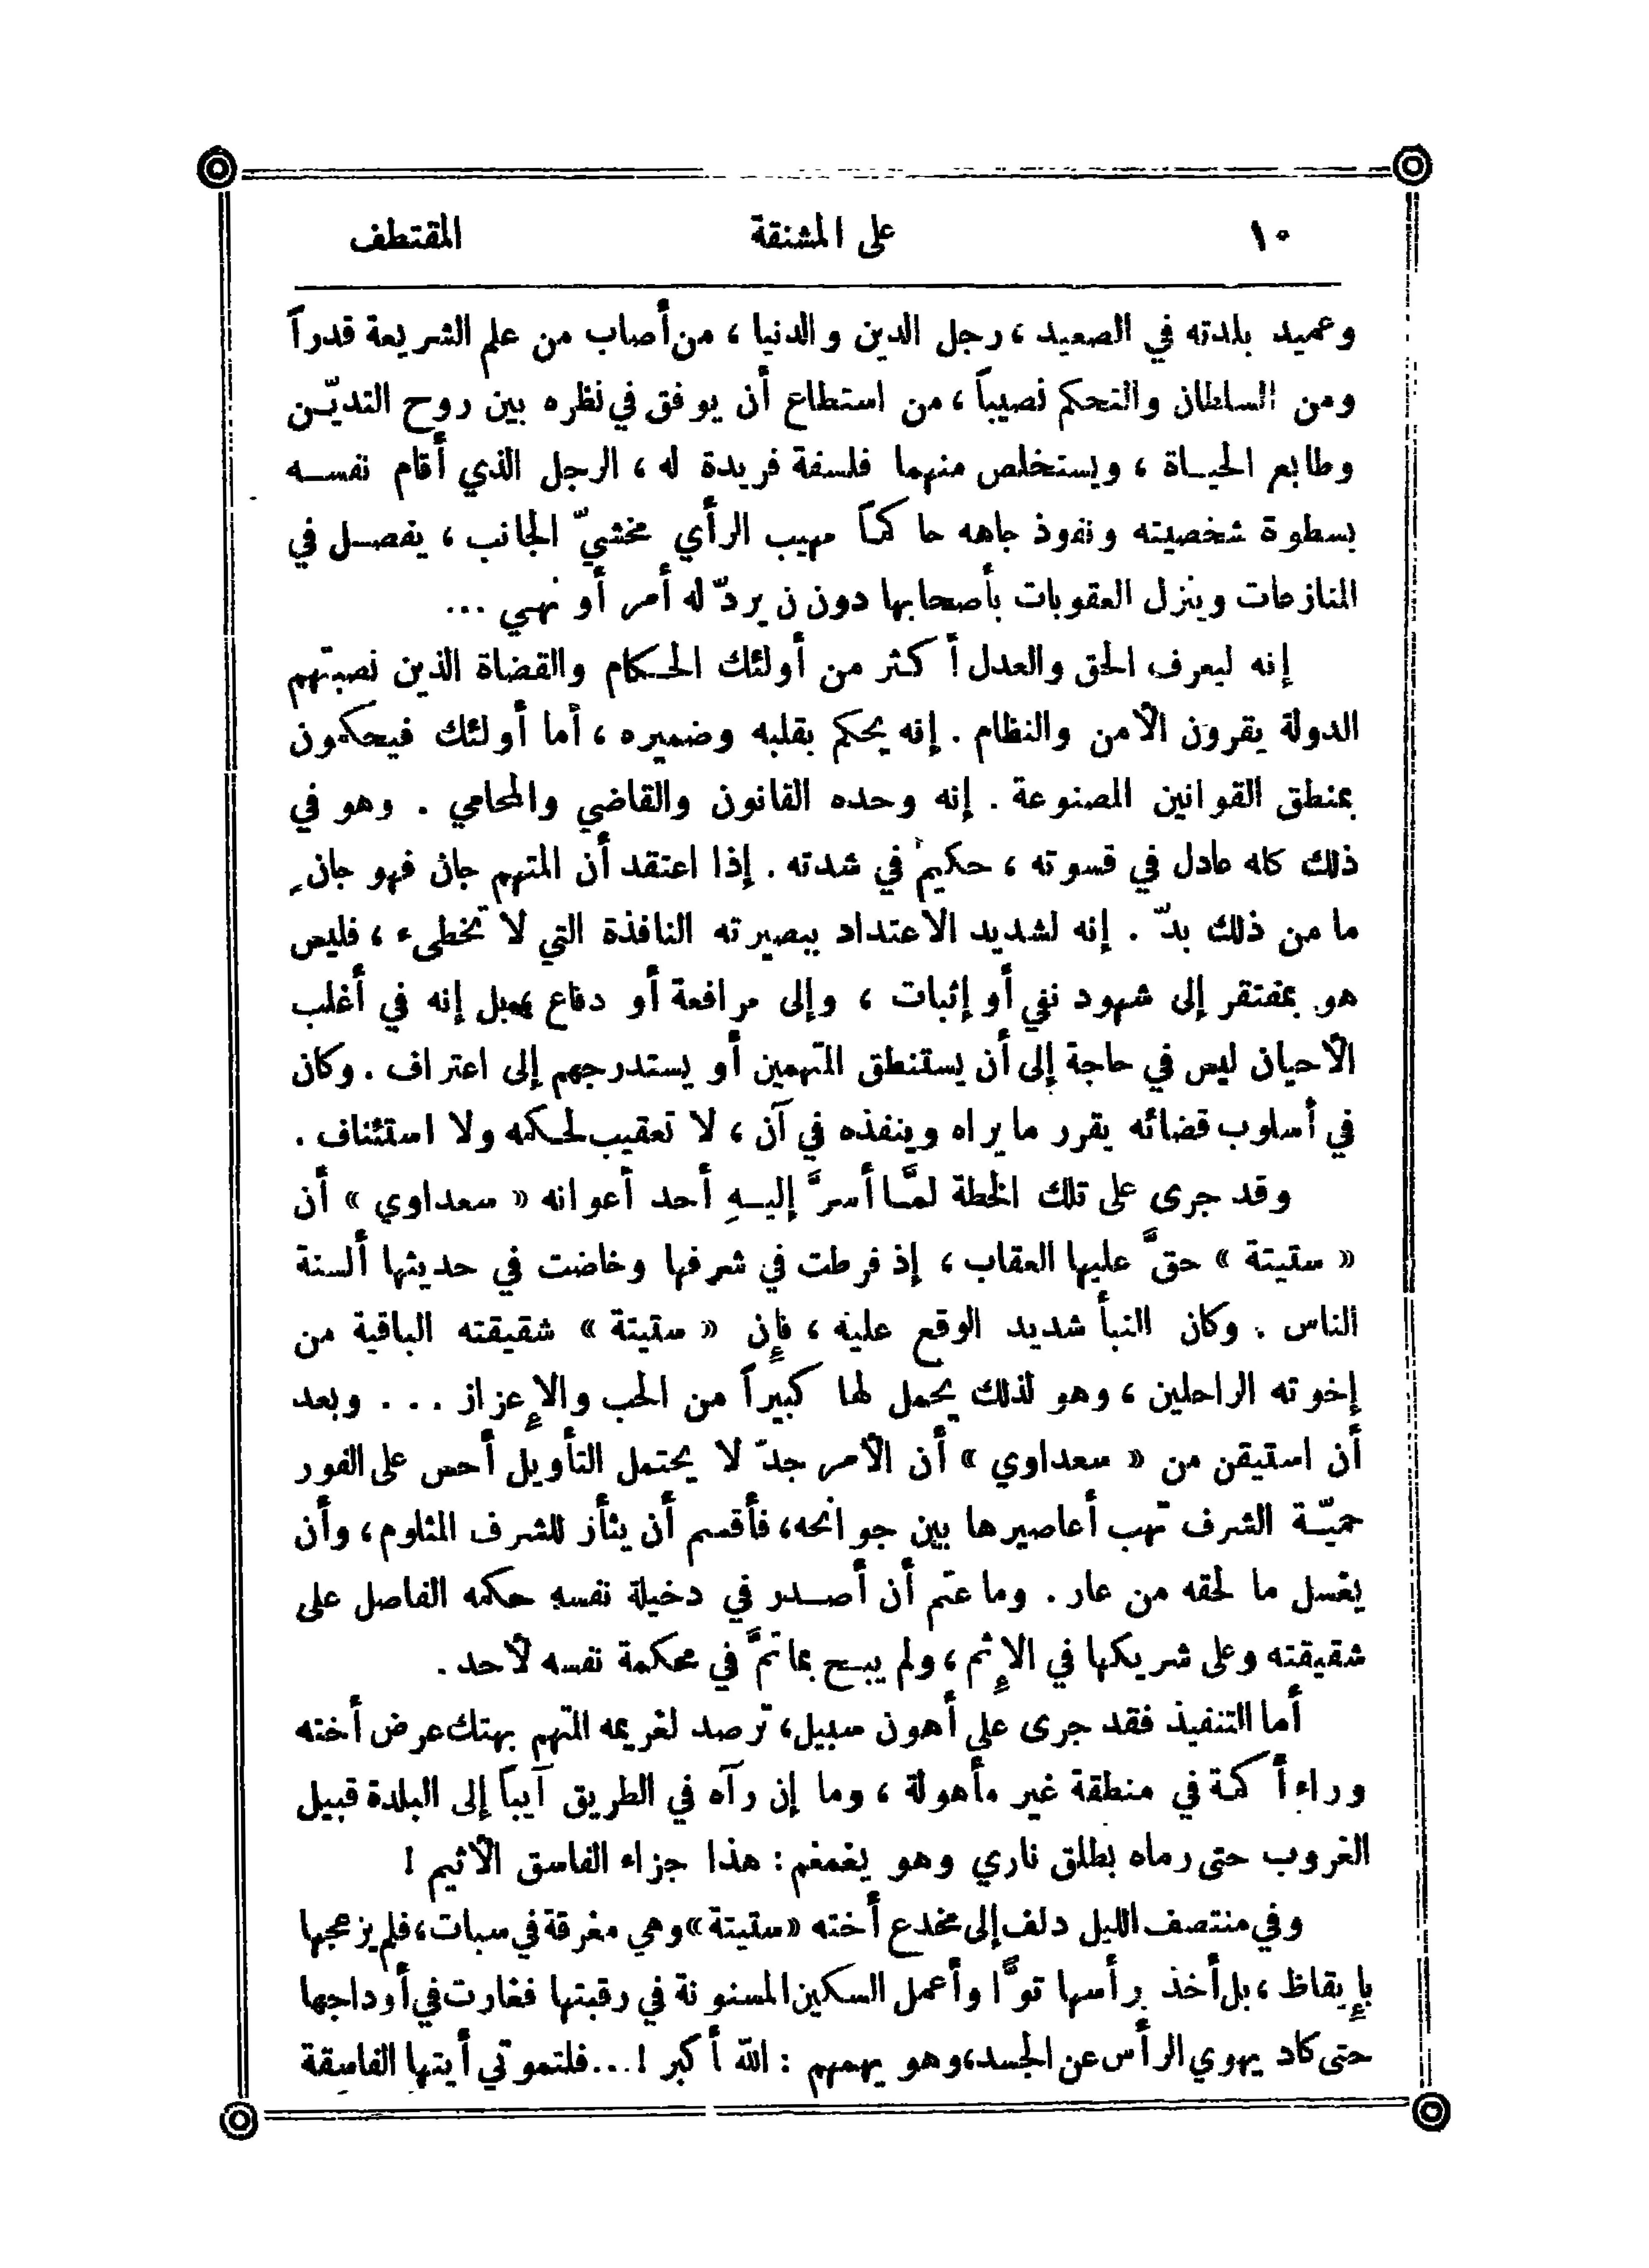 ١٠ على المشنقة المقتطف
وعميد بلدته في الصعيد ، رجل الدين والدنيا ، من أصاب من علم الشريعة قدراً
ومن السلطان والتحكم نصيباً ، من استطاع أن يوفق في نظره بين روح التديّـن
وطابع الحيـاة ، ويستخلص منهما فلسفة فريدة له ، الرجل الذي أقام نفسـه
بسطوة شخصيته ونفوذ جاهه حاكماً مهيب الرأي مخشيّ الجانب ، يفصـل في
المنازعات وينزل العقوبات بأصحابها دون ن يردّ له أمر أو نهـي ...
إنه ليعرف الحق والعدل أكثر من أولئك الحـكام والقضاة الذين نصبتهم
الدولة يقرون الأمن والنظام . إنه يحكم بقلبه وضميره ، أما أولئك فيحكمون
بمنطق القوانين المصنوعة . إنه وحده القانون والقاضي والمحامي . وهو في
ذلك كله عادل في قسوته ، حكيم في شدته . إذا اعتقد أن المتهم جان فهو جانٍ
ما من ذلك بدّ . إنه لشديد الاعتداد ببصيرته النافذة التي لا تخطىء ، فليس
هو بمفتقر إلى شهود نفي أو إثبات ، وإلى مرافعة أو دفاع ، بل إنه في أغلب
الأحيان ليس في حاجة إلى أن يستنطق المتهمين أو يستدرجهم إلى اعتراف . وكان
في أسلوب قضائه يقرر ما يراه وينفذه في آن ، لا تعقيب لحـكمه ولا استئناف .
وقد جرى على تلك الخطة لمَّـا أسرَّ إليـهِ أحد أعوانه « سعداوي » أن
« ستيتة » حقَّ عليها العقاب ، إذ فرطت في شرفها وخاضت في حديثها ألسنة
الناس . وكان النبأ شديد الوقع عليه ، فإن « ستيتة » شقيقته الباقية من
إخوته الراحلين ، وهو لذلك يحمل لها كبيراً من الحب والإعزاز ... وبعد
أن استيقن من « سعداوي » أن الأمر جدّ لا يحتمل التأويل أحس على الفور
حميّـة الشرف تهب أعاصيرها بين جوانحه ، فأقسم أن يثأر للشرف المثلوم ، وأن
يغسل ما لحقه من عار . وما عتم أن أصـدر في دخيلة نفسه حكمه الفاصل على
شقيقته وعلى شريكها في الإثم ، ولم يبـح بما تمَّ في محكمة نفسه لأحد .
أما التنفيذ فقد جرى على أهون سبيل ، ترصد لغريمه المتهم بهتك عرض أخته
وراء أكمة في منطقة غير مأهولة ، وما إن رآه في الطريق آيباً إلى البلدة قبيل
الغروب حتى رماه بطلق ناري وهو يغمغم : هذا جزاء الفاسق الأثيم !
وفي منتصف الليل دلف إلى مخدع أخته «ستيتة» وهي مغرقة في سبات ، فلم يزعجها
بإيقاظ ، بل أخذ برأسها توًّا وأعمل السكين المسنونة في رقبتها فغارت في أوداجها
حتى كاد يهوي الرأس عن الجسد ، وهو يهمهم : الله أكبر !... فلتموتي أيتها الفاسقة